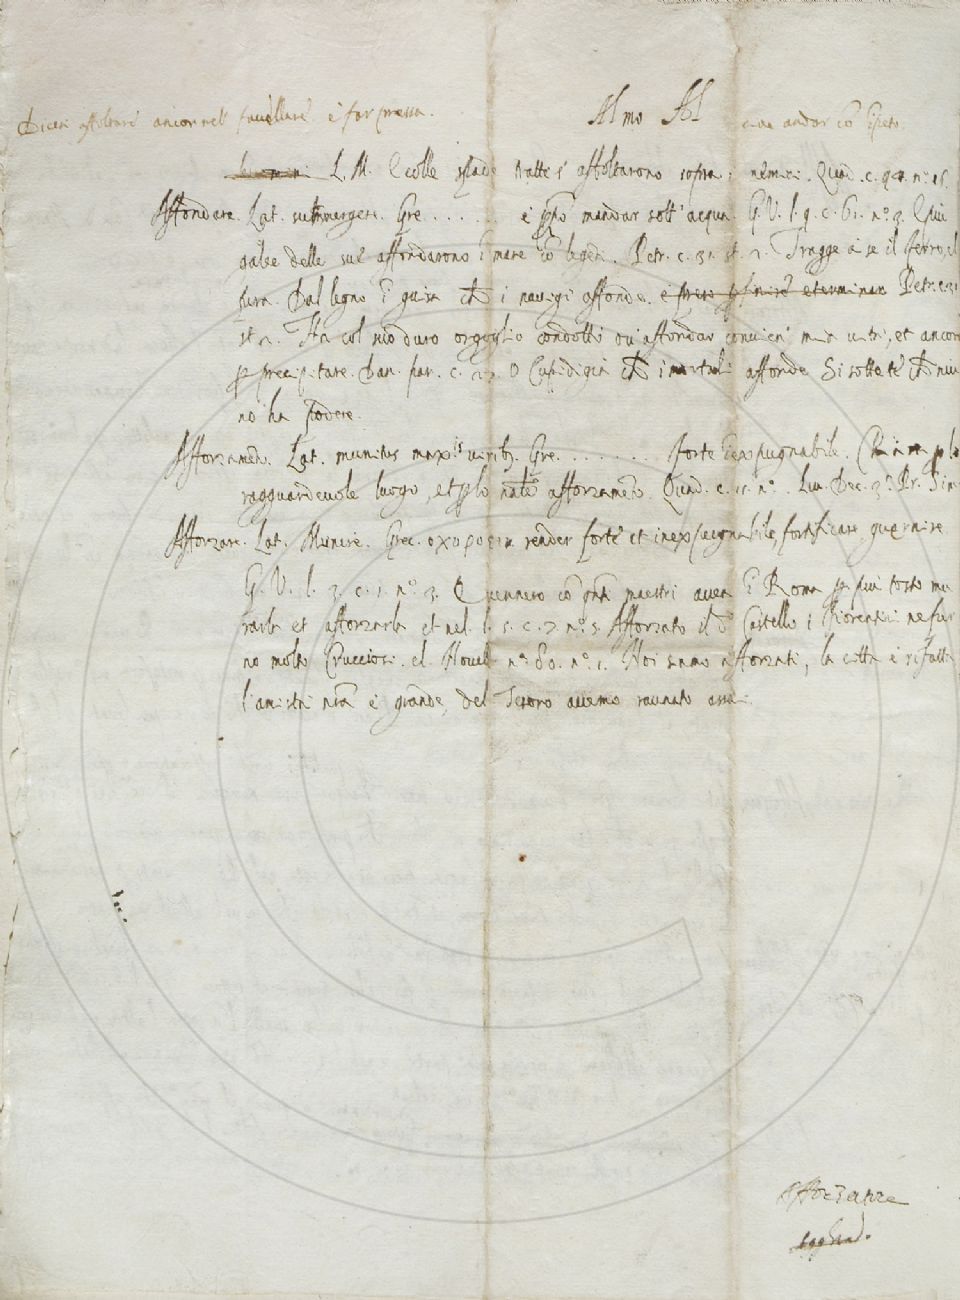 Dicesi affoltare ancor nel favellare e far pressa. Al mo Al cioè andar cō
L. M. E colle spade tratte s' affoltarono sopra i nemici. Quad. c.
Affondare. Lat. submergere. Gre. . . . . . . è ꝓpio mandar sott' acqua. G. V. l. 9. c. 61. n.º 3. Quivi
galee delle sue affondarono ī mare cō legni. Petr. c. st. 2. Tragge a se il ferro, e 'l
fura. Dal legno ī guisa chē i navigi affonde. Petr. c. 31
st. 2. Ha col suo duro orgoglio condotti ov' affondar convien mia vita, et ancor
ꝑ precipitare. Dan. par. c. 27. O Cupidigia chē i mortali affonde Si sotte te chē niu
no ha podere.
Afforzamento. Lat. munitus Gre. . . . . . . . . forte inexpugnabile.
ragguardevole luogo, et ꝑ lo afforzamento. Quad. c. n.º Liv. Dec. 3ª. Pr.
Afforzare. Lat. Munire. Grec. render forte et inexpugnabile, fortificare, guernire
G. V. l. 3. c. 1. n.º 3. E vennero cō maestri avea ī Roma ꝑ piu tosto mu
rarla et afforzarla et nel l. 5. c. 7. n.º 5. Afforzato il dº Castello i Fiorentini ne fur
no molto crucciosi. el Novell. n.º 80. n.º 1. Noi siamo afforzati, la citta è rifatta
l'amistà nr̄a è grande, del Tesoro avemo raunato assai.
Afforzare